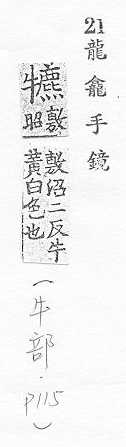 21 龍龕手鏡
犥敷
昭
敷沼二反牛
黃白色也
(牛部.p115)